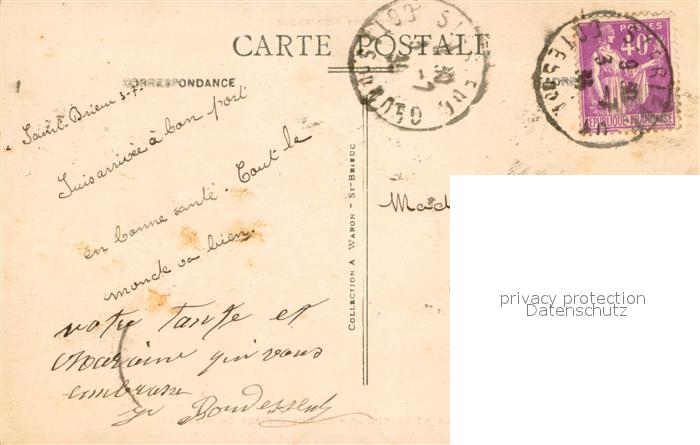 CARTE POSTALE
CORRESPONDANCE
Saint-Brieuc 3-7-
Suis arrivée à bon port
en bonne santé. Tout le
monde va bien.
votre tante et
Maraine qui vous
embrasse
COLLECTION A WARON - ST-BRIEUC
40c
REPUBLIQUE FRANÇAISE
Mad
privacy protection
Datenschutz